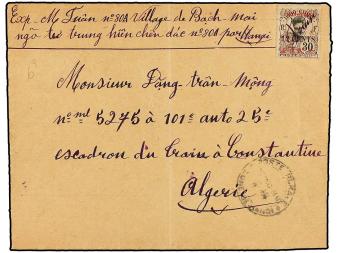 Exp - M Tuân n° 80A Village de Bạch-mai
ngõ tư trung hiên chên dác n° 80A par Hanoi
CENTS
30
Monsieur Đặng-trần-Mộng
n° ml 5275 à 101e auto 25e
escadron du train à Constantine
Algerie